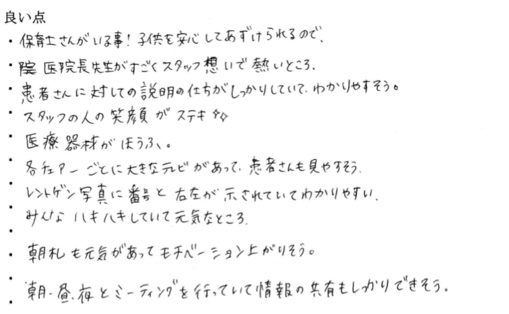 良い点
・保育士さんがいる事！子供を安心してあずけられるので、
・院 医院長先生がすごくスタッフ想いで熱いところ、
・患者さんに対しての説明の仕方がしっかりしていて、わかりやすそう。
・スタッフの人の笑顔がステキ☆☆
・医療器材がほうふ、。
・各チェアーごとに大きなテレビがあって、患者さんも見やすそう、
・レントゲン写真に番号と右左が示されていてわかりやすい、
・みんなハキハキしていて元気なところ、
・朝礼も元気があってモチベーション上がりそう。
・朝・昼、夜とミーティングを行っていて情報の共有もしっかりできそう。